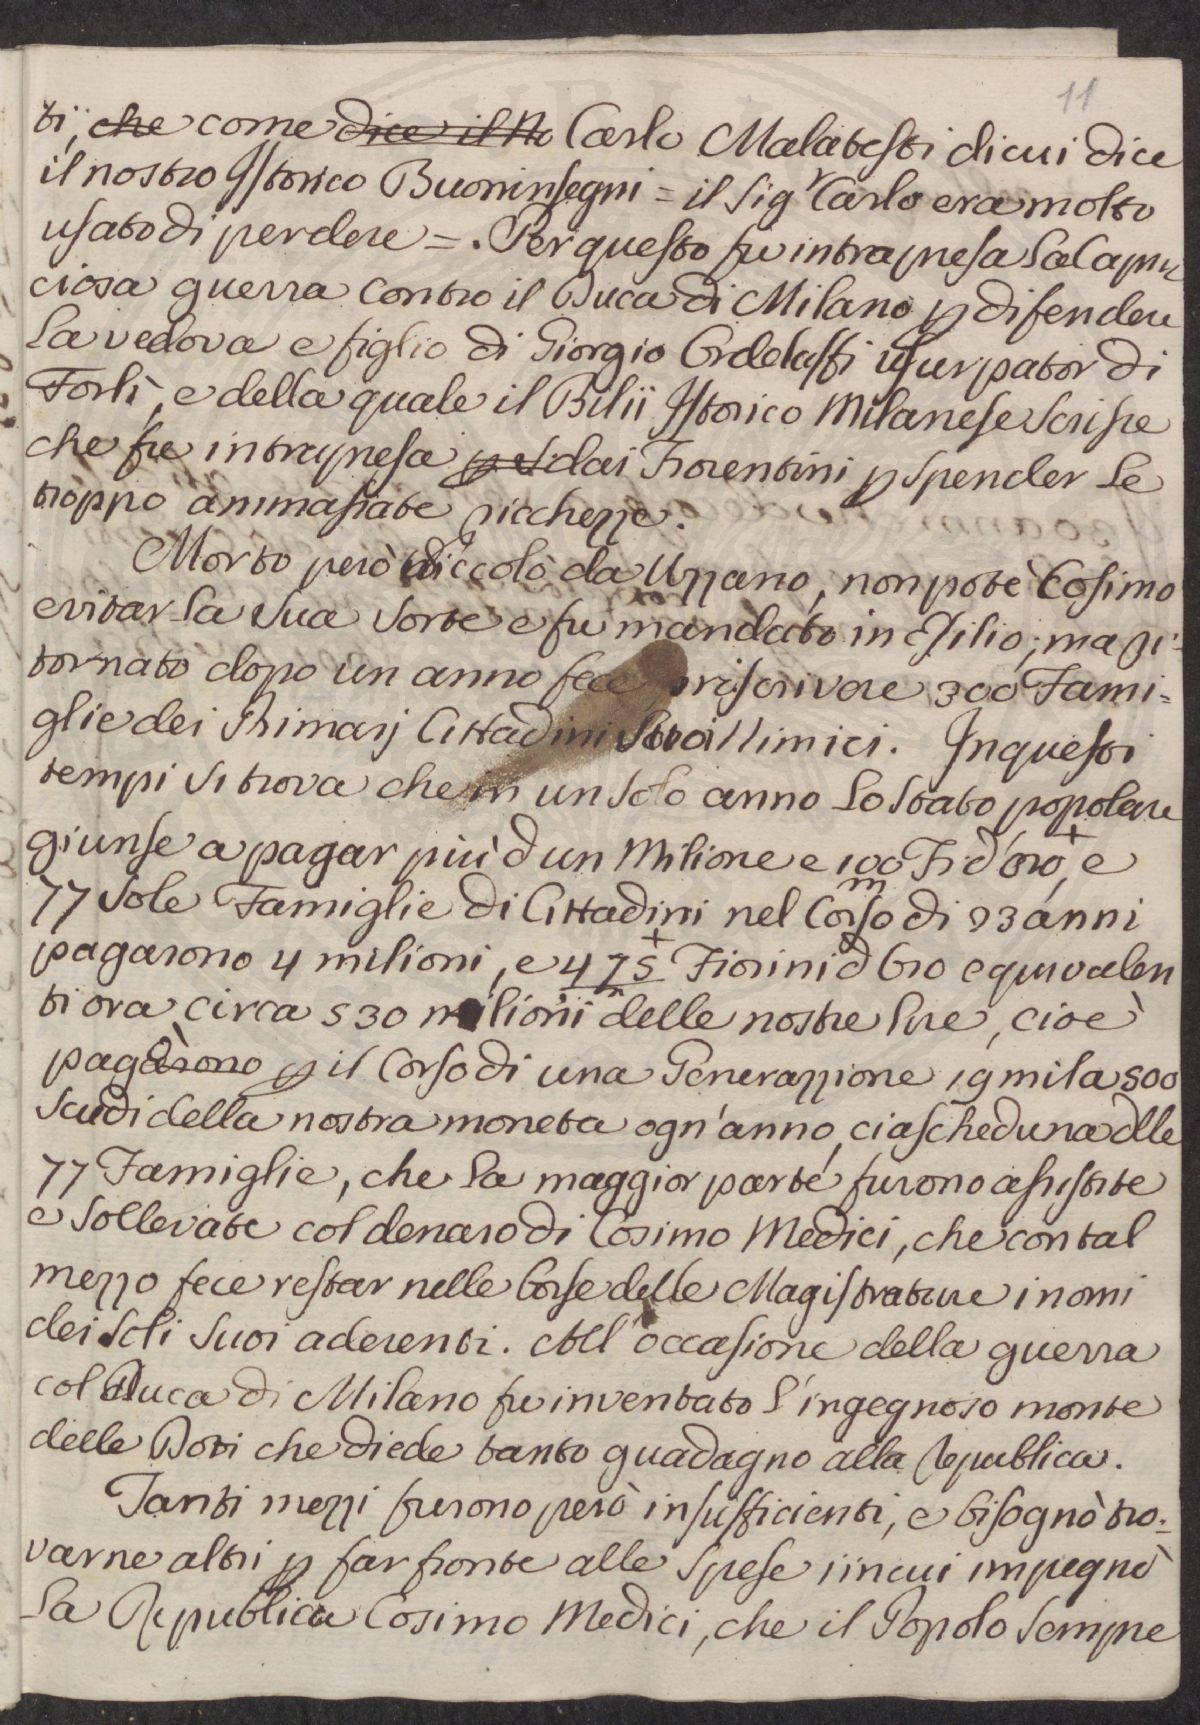 11
ti, che come dice il No Carlo Malatesti di cui dice
il nostro Istorico Buoninsegni = il Sigr Carlo era molto
usato di perdere =. Per questo fu intrapresa la Capric
ciosa guerra contro il Duca di Milano p difendere
la vedova e figlio di Giorgio Ordelaffi usurpator di
Forlì, e della quale il Bilii Istorico Milanese scrisse
che fu intrapresa dai Fiorentini p spender le
troppo ammassate ricchezze.
Morto però Niccolò da Uzzano, non potè Cosimo
evitar la sua sorte e fu mandato in Esilio; ma ri-
tornato dopo un anno fece proscrivere 300 Fami=
glie dei Primarj Cittadini suoi Nimici. In questi
tempi si trova che in un solo anno lo stato popolare
giunse a pagar più d un Milione e 100 Fi d'oro +, e
77 sole Famiglie di Cittadini nel Corso di 23 anni
pagarono 4 milioni, e 475 + m Fiorini d Oro equivalen
ti ora circa 530 milioni delle nostre lire, cioè
pagàrono p il Corso di una Generazzione 19 mila 500
Scudi della nostra moneta ogn'anno, ciascheduna dlle
77 Famiglie, che la maggior parte furono assistite
e sollevate col denaro di Cosimo Medici, che con tal
mezzo fece restar nelle borse delle Magistrature i nomi
dei soli suoi aderenti. All'occasione della guerra
col Duca di Milano fu inventato l'ingegnoso monte
delle Doti che diede tanto guadagno alla Republica.
Tanti mezzi furono però insufficienti, e bisognò tro=
varne altri p far fronte alle spese in cui impegnò
la Republica Cosimo Medici, che il Popolo sempre